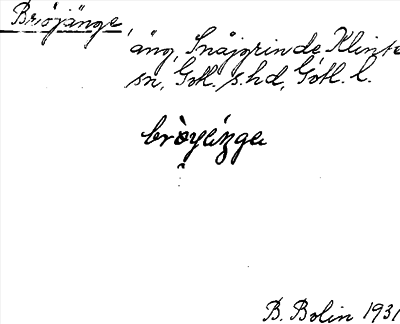 Brojänge,
äng, Snäjgrinde, Klinte
sn, Gotl. s. hd, Gotl. l.
bròyänga
B. Bolin 1931